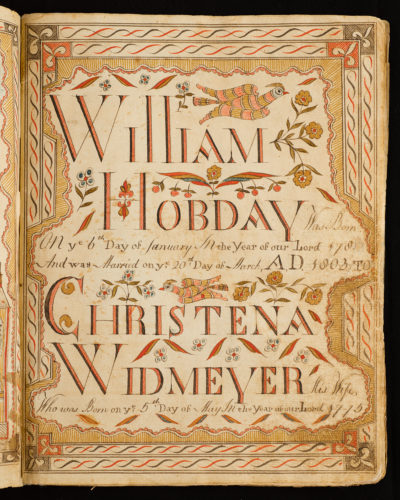 William
Hobday Was Born
On ye 6th Day of January In the Year of our Lord
And was Married on ye 20th Day of March, A.D. 1803, TO
Christena
Widmeyer His Wife,
Who was Born on ye 5th Day of May In the Year of our Lord 1775